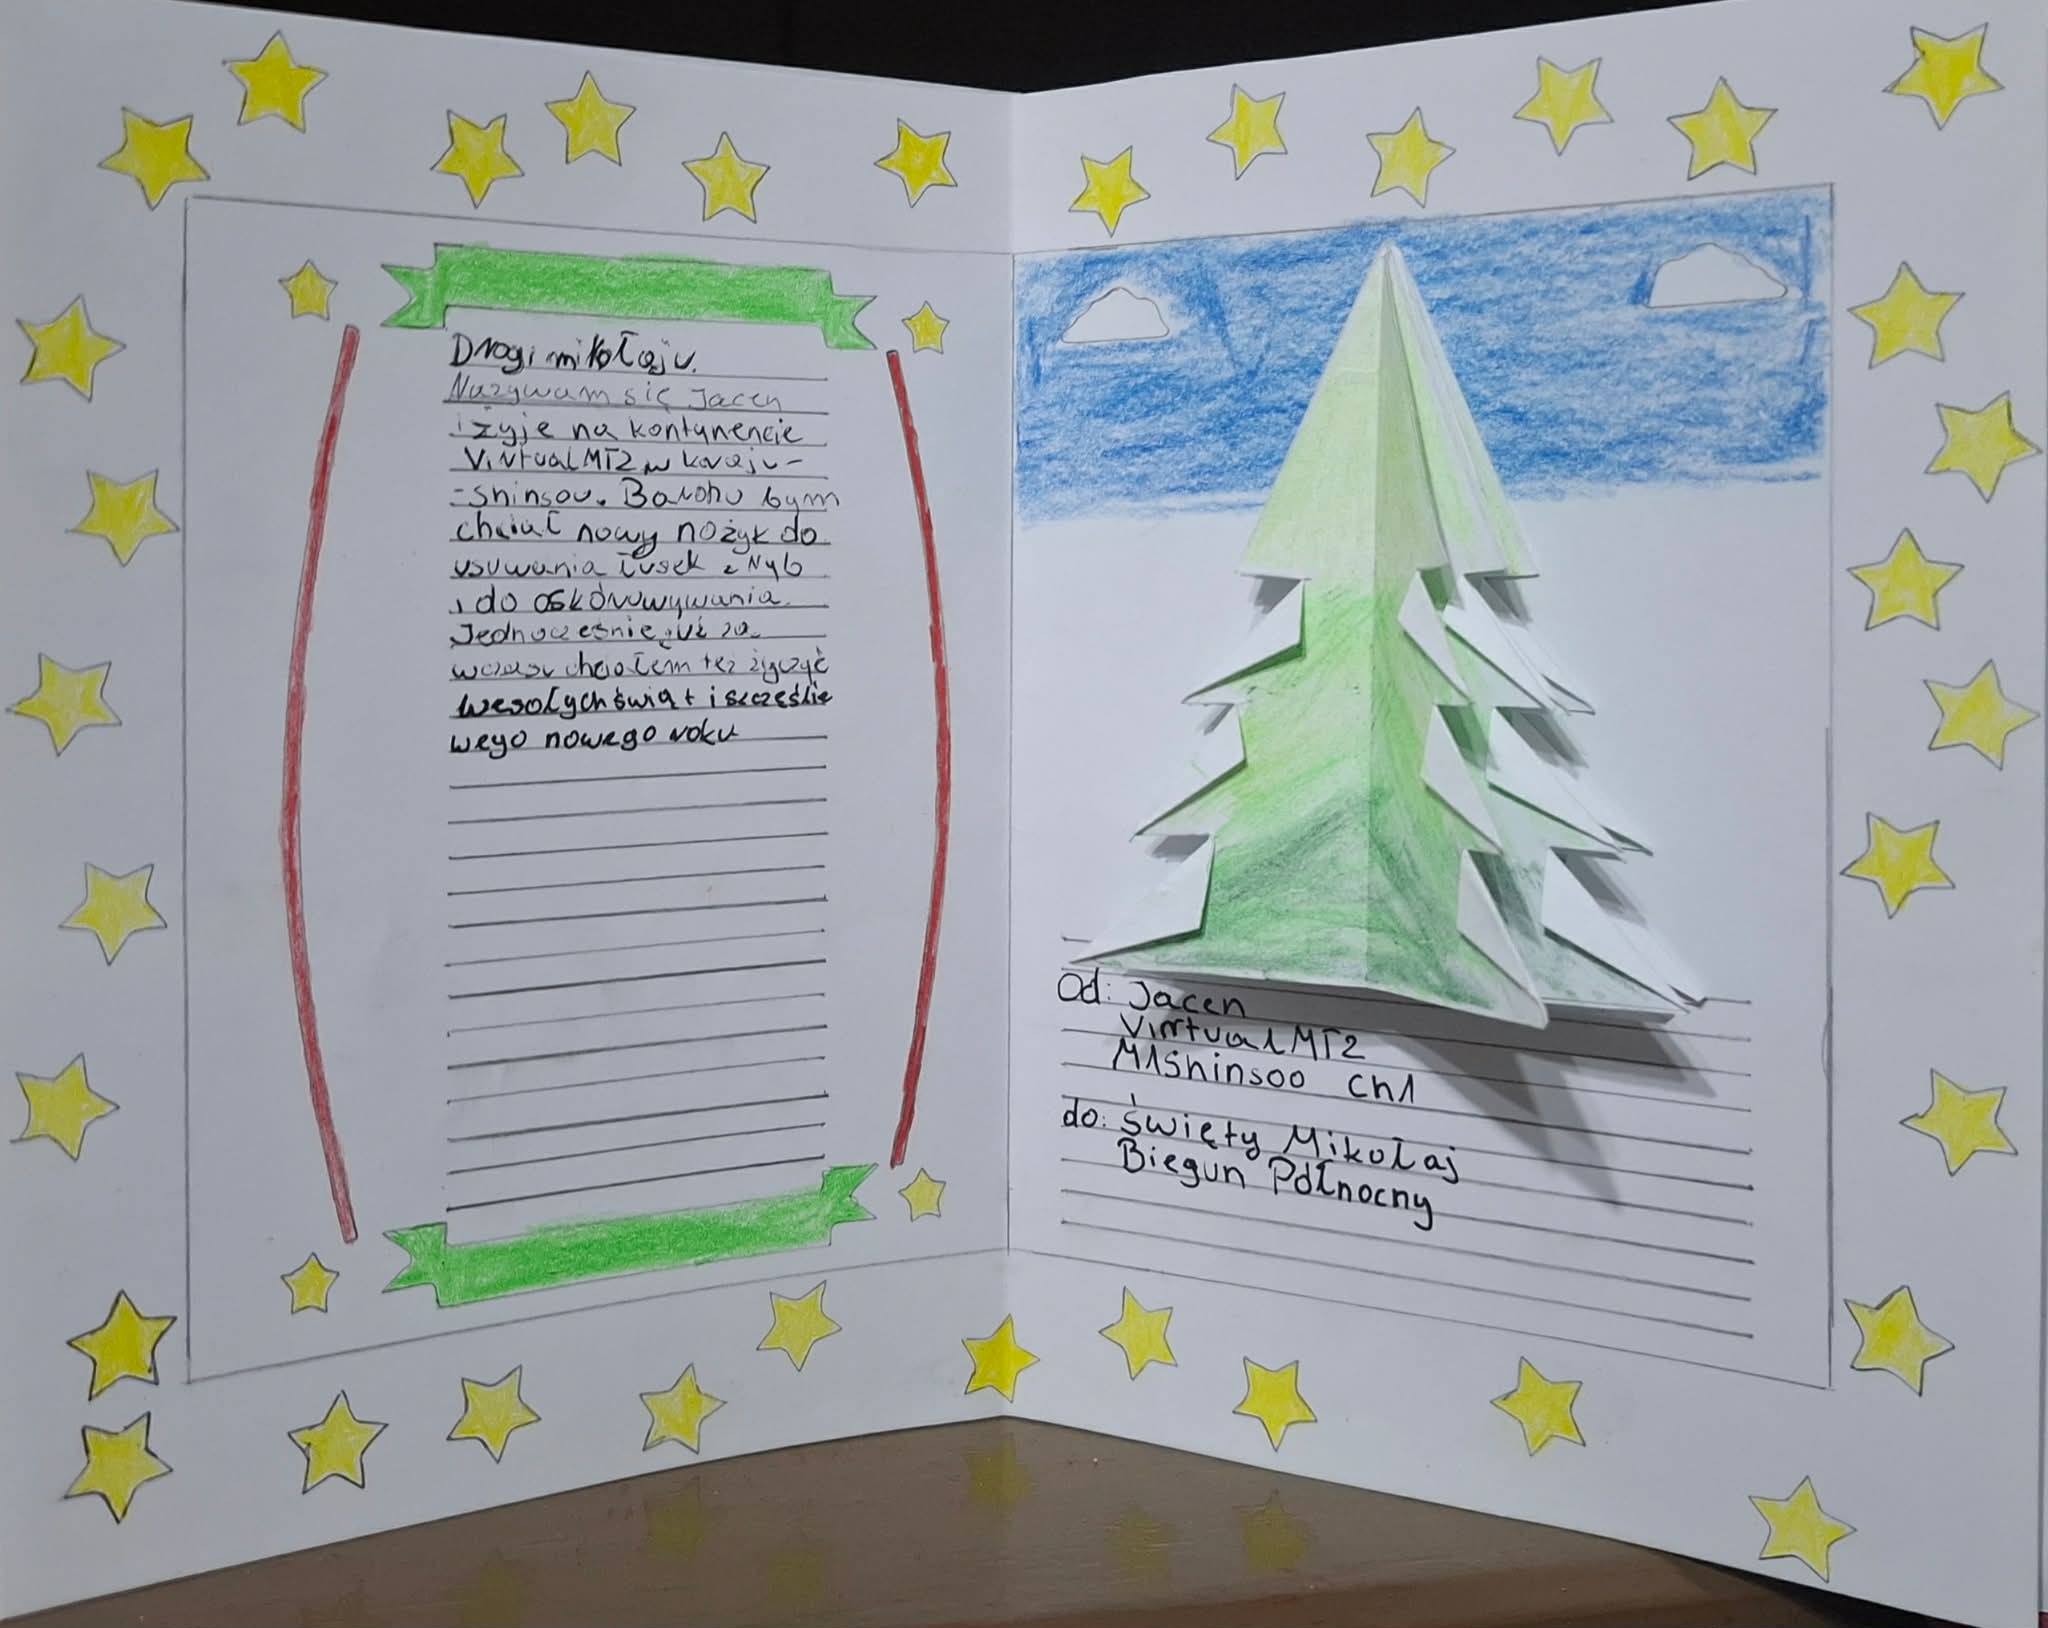 Drogi mikołaju.
Nazywam się Jacen
i żyje na kontynencie
VirtualMT2 w kraju-
-shinsou. Bardzo bym
chciał nowy nożyk do
usuwania łusek z Ryb
i do oskórowywania.
Jednocześnie już za
wczasu chciałem też życzyć
wesołych świąt i szczęśli
wego nowego roku
Od: Jacen
VirtualMT2
M1Shinsoo Ch1
do: Święty Mikołaj
Biegun Północny